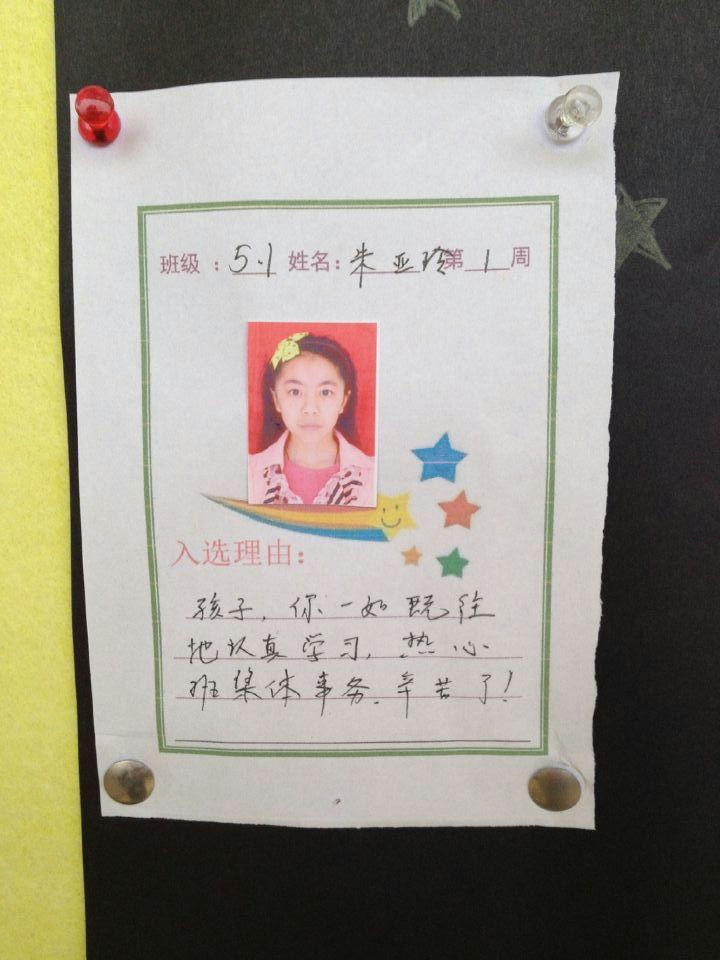 班级：5.1 姓名：朱亚玲 第1周
入选理由：
孩子，你一如既往
地认真学习，热心
班集体事务.辛苦了！